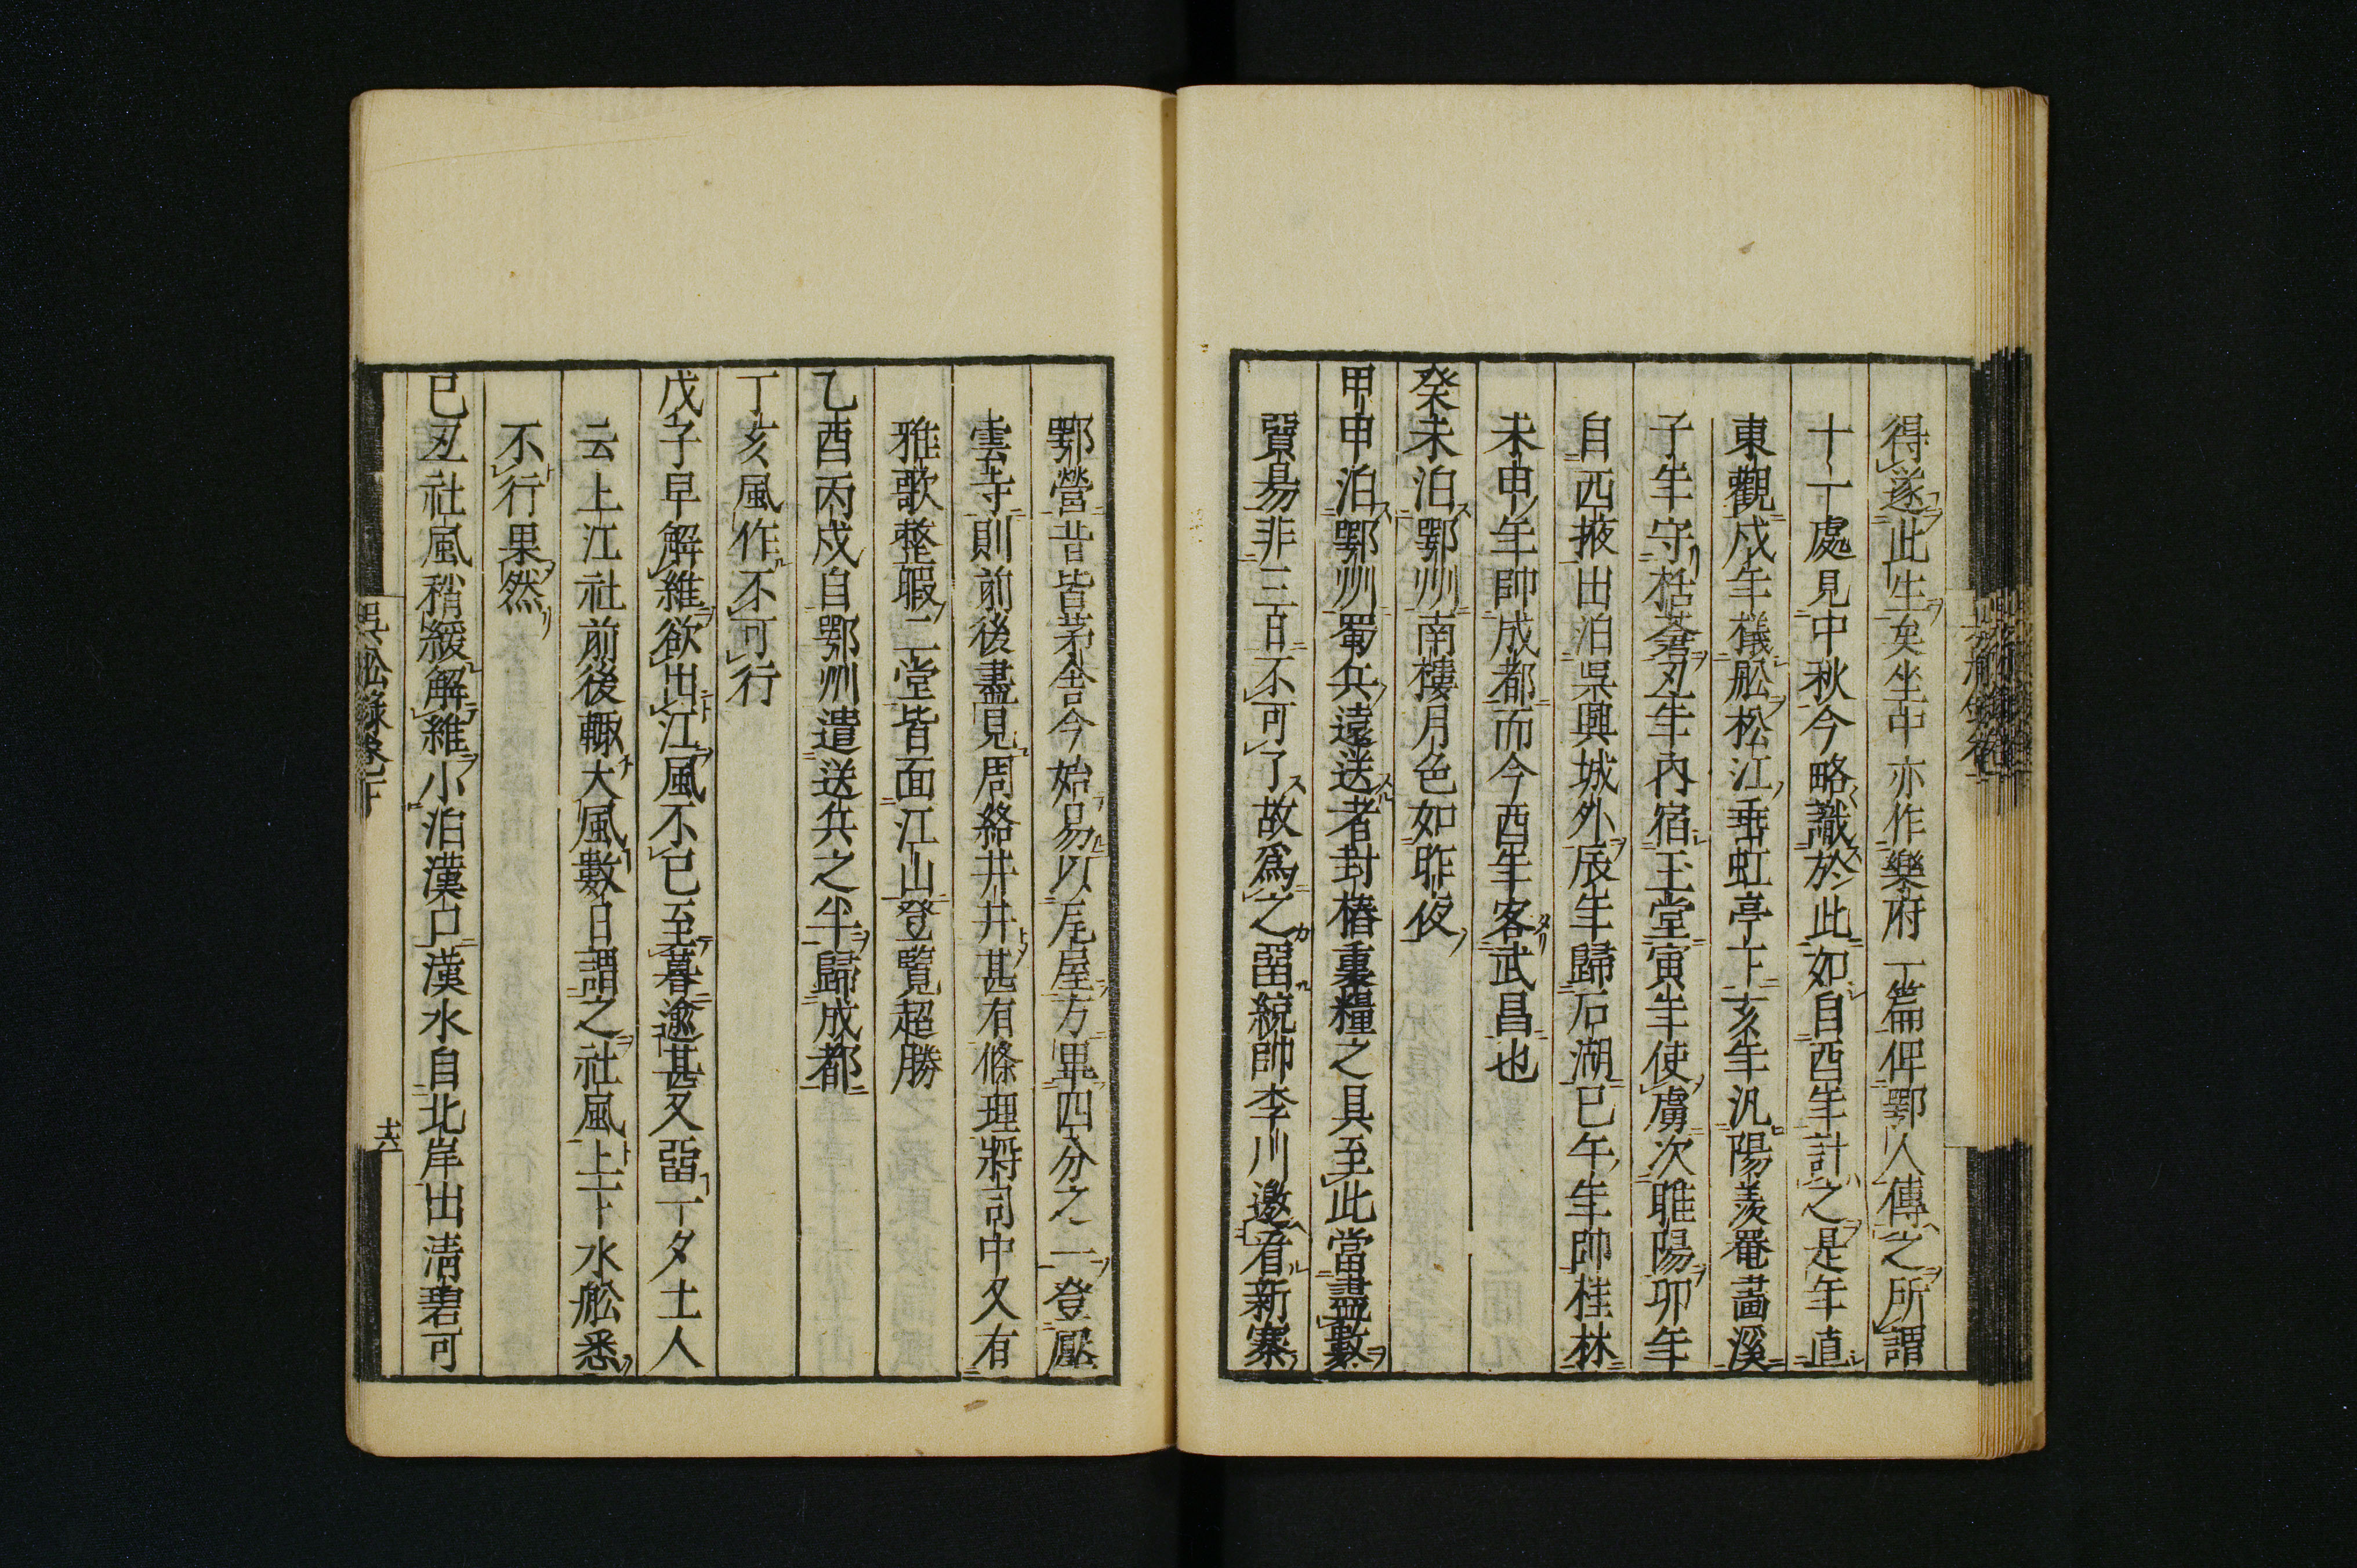 得遂此生矣坐中亦作樂府一篇俾鄂人傳之所謂
十一處見中秋今略識於此如自酉年計之是年直
東觀戌年檥船松江垂虹亭下亥年汎陽羨罨畫溪
子年守栝蒼丑年內宿玉堂寅年使虜次睢陽卯年
自西掖出泊吳興城外辰年歸石湖巳午年帥桂林
未申年帥成都而今酉年客武昌也
癸未泊鄂州南樓月色如昨夜
甲申泊鄂州蜀兵遠送者封樁裹糧之具至此當盡數
貿易非三日不可了故爲之留統帥李川邀看新寨
鄂營昔皆茅舍今始易以瓦屋方畢四分之一登壓
雲寺則前後盡見周絡井井甚有條理將司中又有
雅歌整暇二堂皆面江山登覽超勝
乙酉丙戌自鄂州遣送兵之半歸成都
丁亥風作不可行
戊子早解維欲出江風不已至暮逾甚又留一夕土人
云上江社前後輒大風數日謂之社風上下水船悉
不行果然
己丑社風稍緩解維小泊漢口漢水自北岸出清碧可
吳船錄卷下
十六